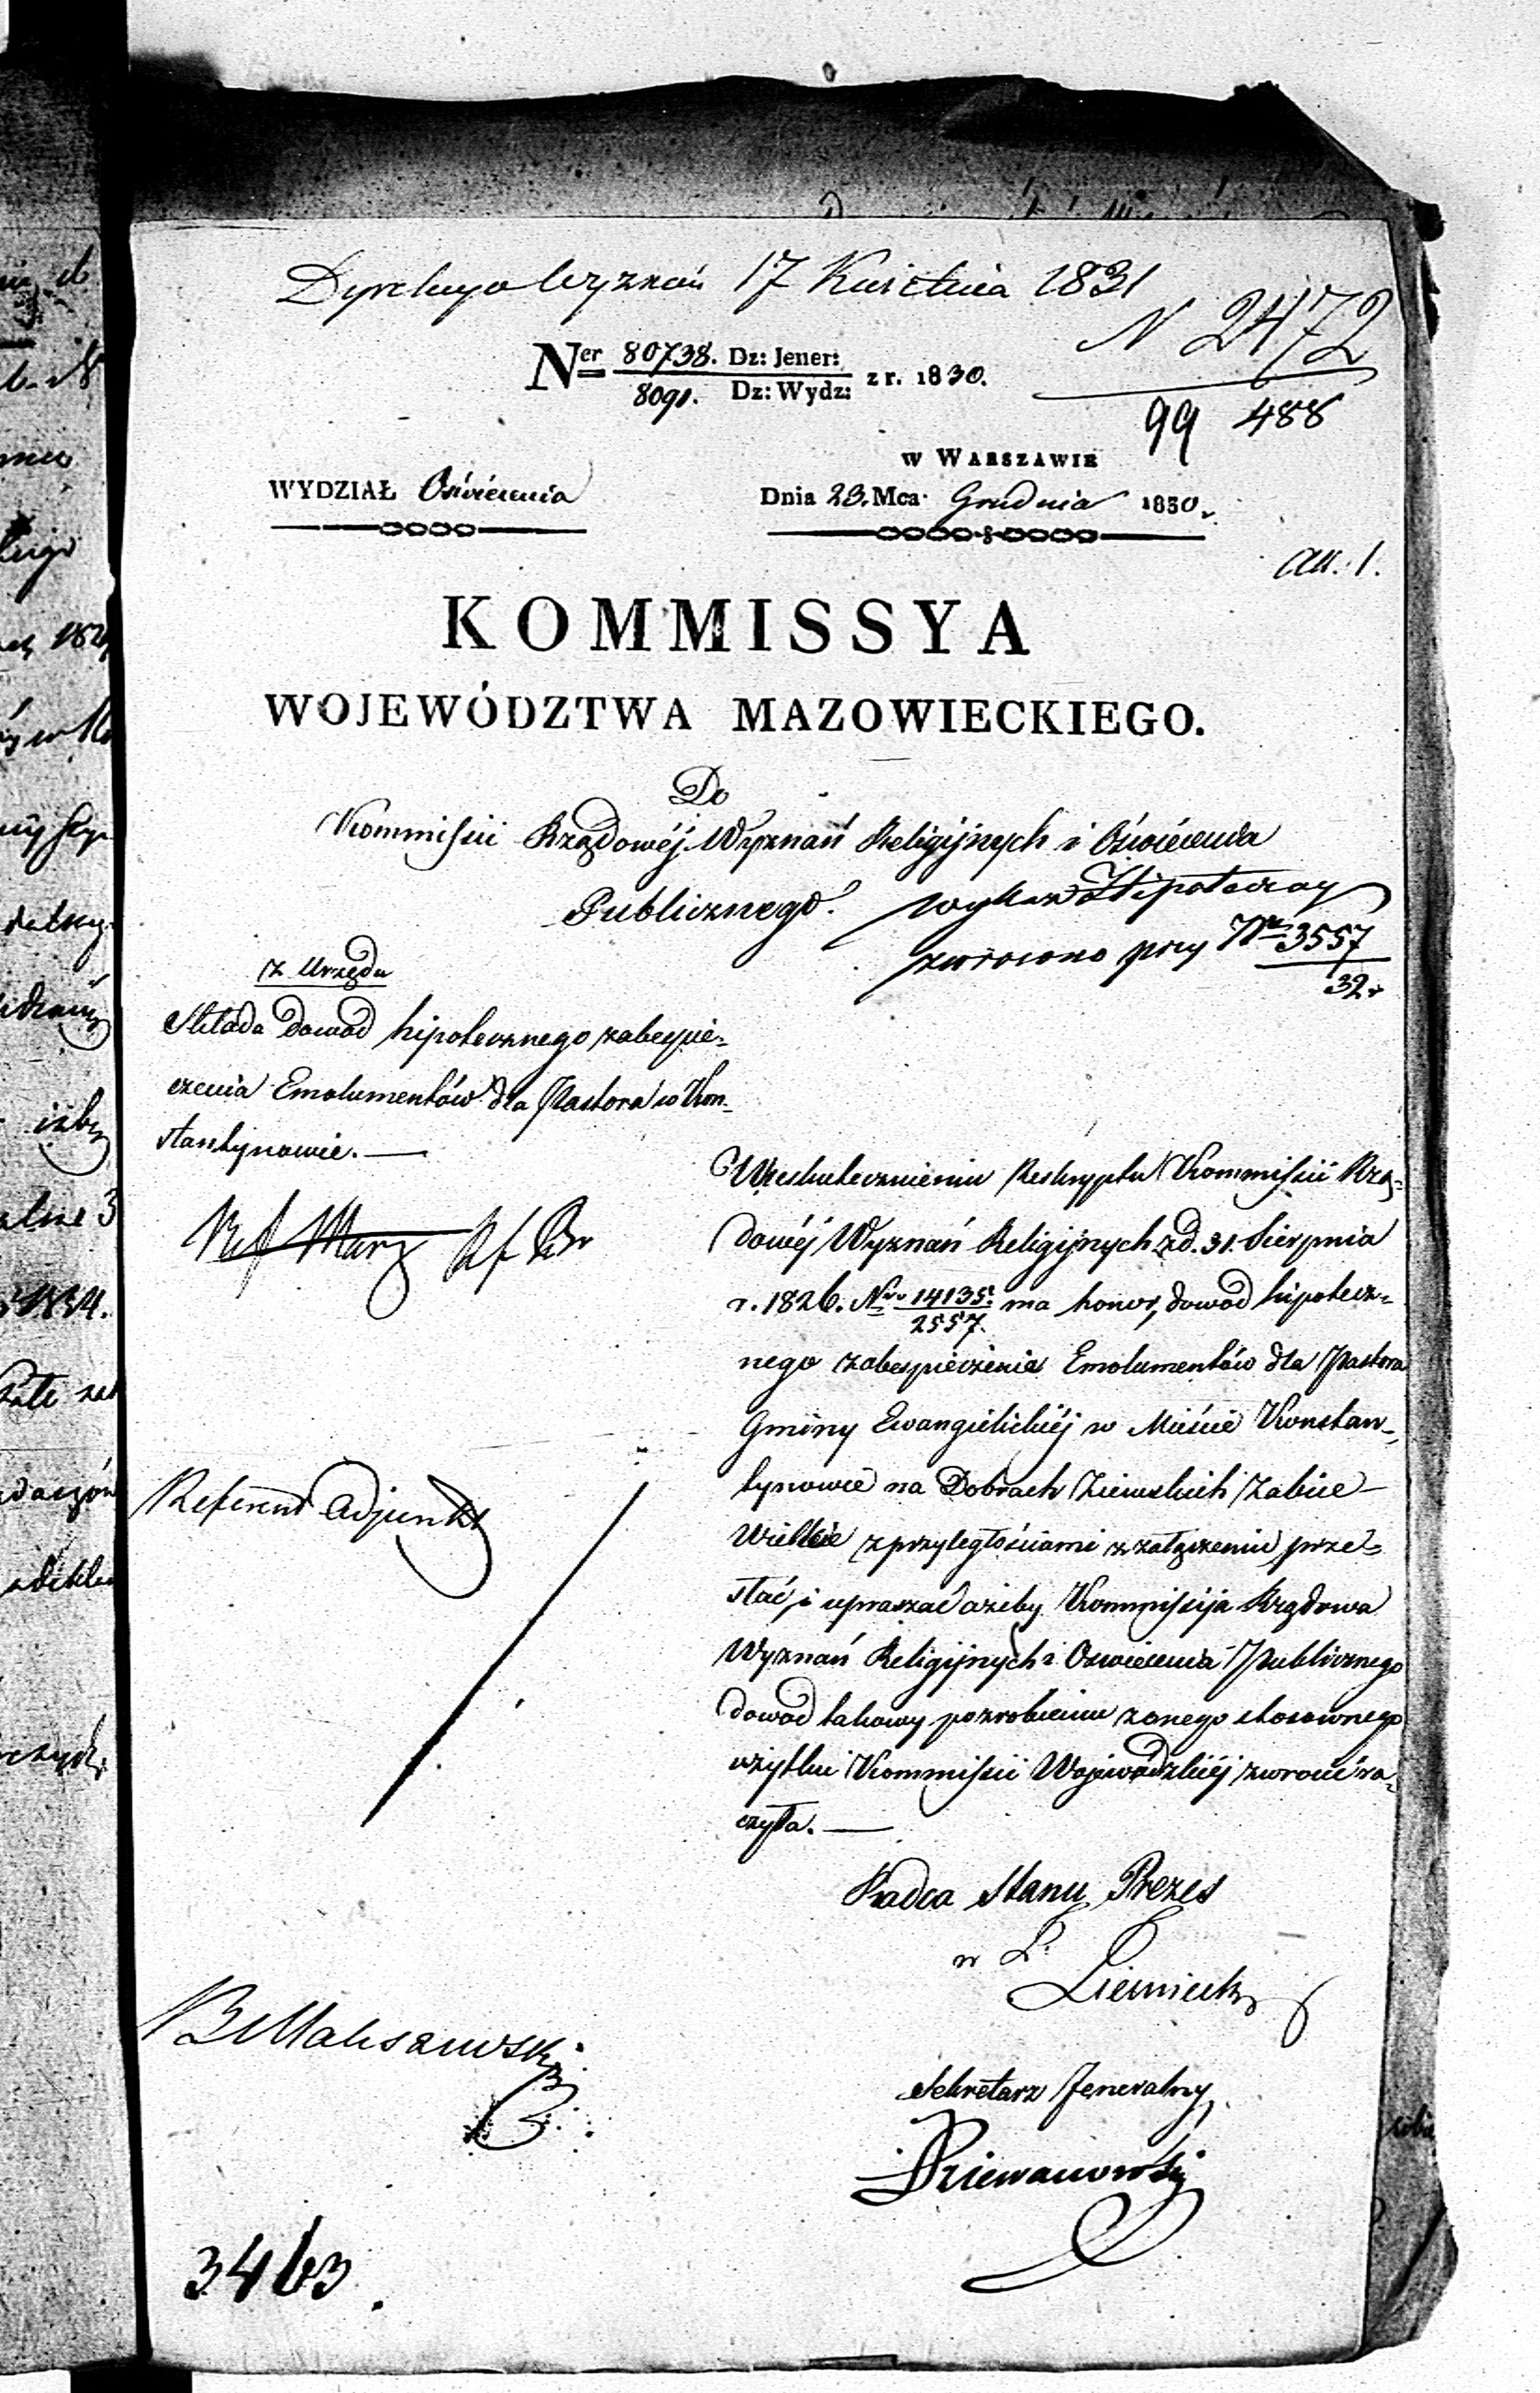 Dyrekcya Wyznań 17 Kwietnia 1831
N 2472
99 488
Ner 80738. Dz: Jener: z r. 1830.
8091. Dz: Wydz:
w Warszawie
WYDZIAŁ Oświecenia
Dnia 23. Mca Grudnia 1830.
All. 1.
KOMMISSYA
WOJEWÓDZTWA MAZOWIECKIEGO.
Do
Kommissii Rządowéj Wyznań Religijnych i Oświecenia
Publicznego.
wykaz Hipoteczny
zwrocono przy Nr 3557
32
z Urzędu
Składa dowód hipotecznego zabespie-
czenia Emolumentów dla Pastora w Kon-
stantynowie. —
Ref
Rf Br
W uskutecznieniu Reskryptu Kommissii Rzą-
dowéj Wyznań Religijnych z d. 31. Sierpnia
r. 1826. Nro 14135. ma honor, dowod hipotecz-
2557.
nego zabespieczenia Emolumentów dla Pastora
Gminy Ewangielickiéj w Mieście Konstan-
tynowie na Dobrach Ziemskich Żabice
Wielkie z przyległościami w załączeniu prze-
słać, i upraszać ażeby Kommissija Rządowa
Wyznań Religijnych i Oswiecenia Publicznego
dowod takowy po zrobieniu z onego stosownego
użytku Kommissii Wojewódzkiéj zwrocić ra-
czyła. —
Referent Adjunkt
Radca Stanu Prezes
w Z.
Sekretarz Jeneralny
3463.